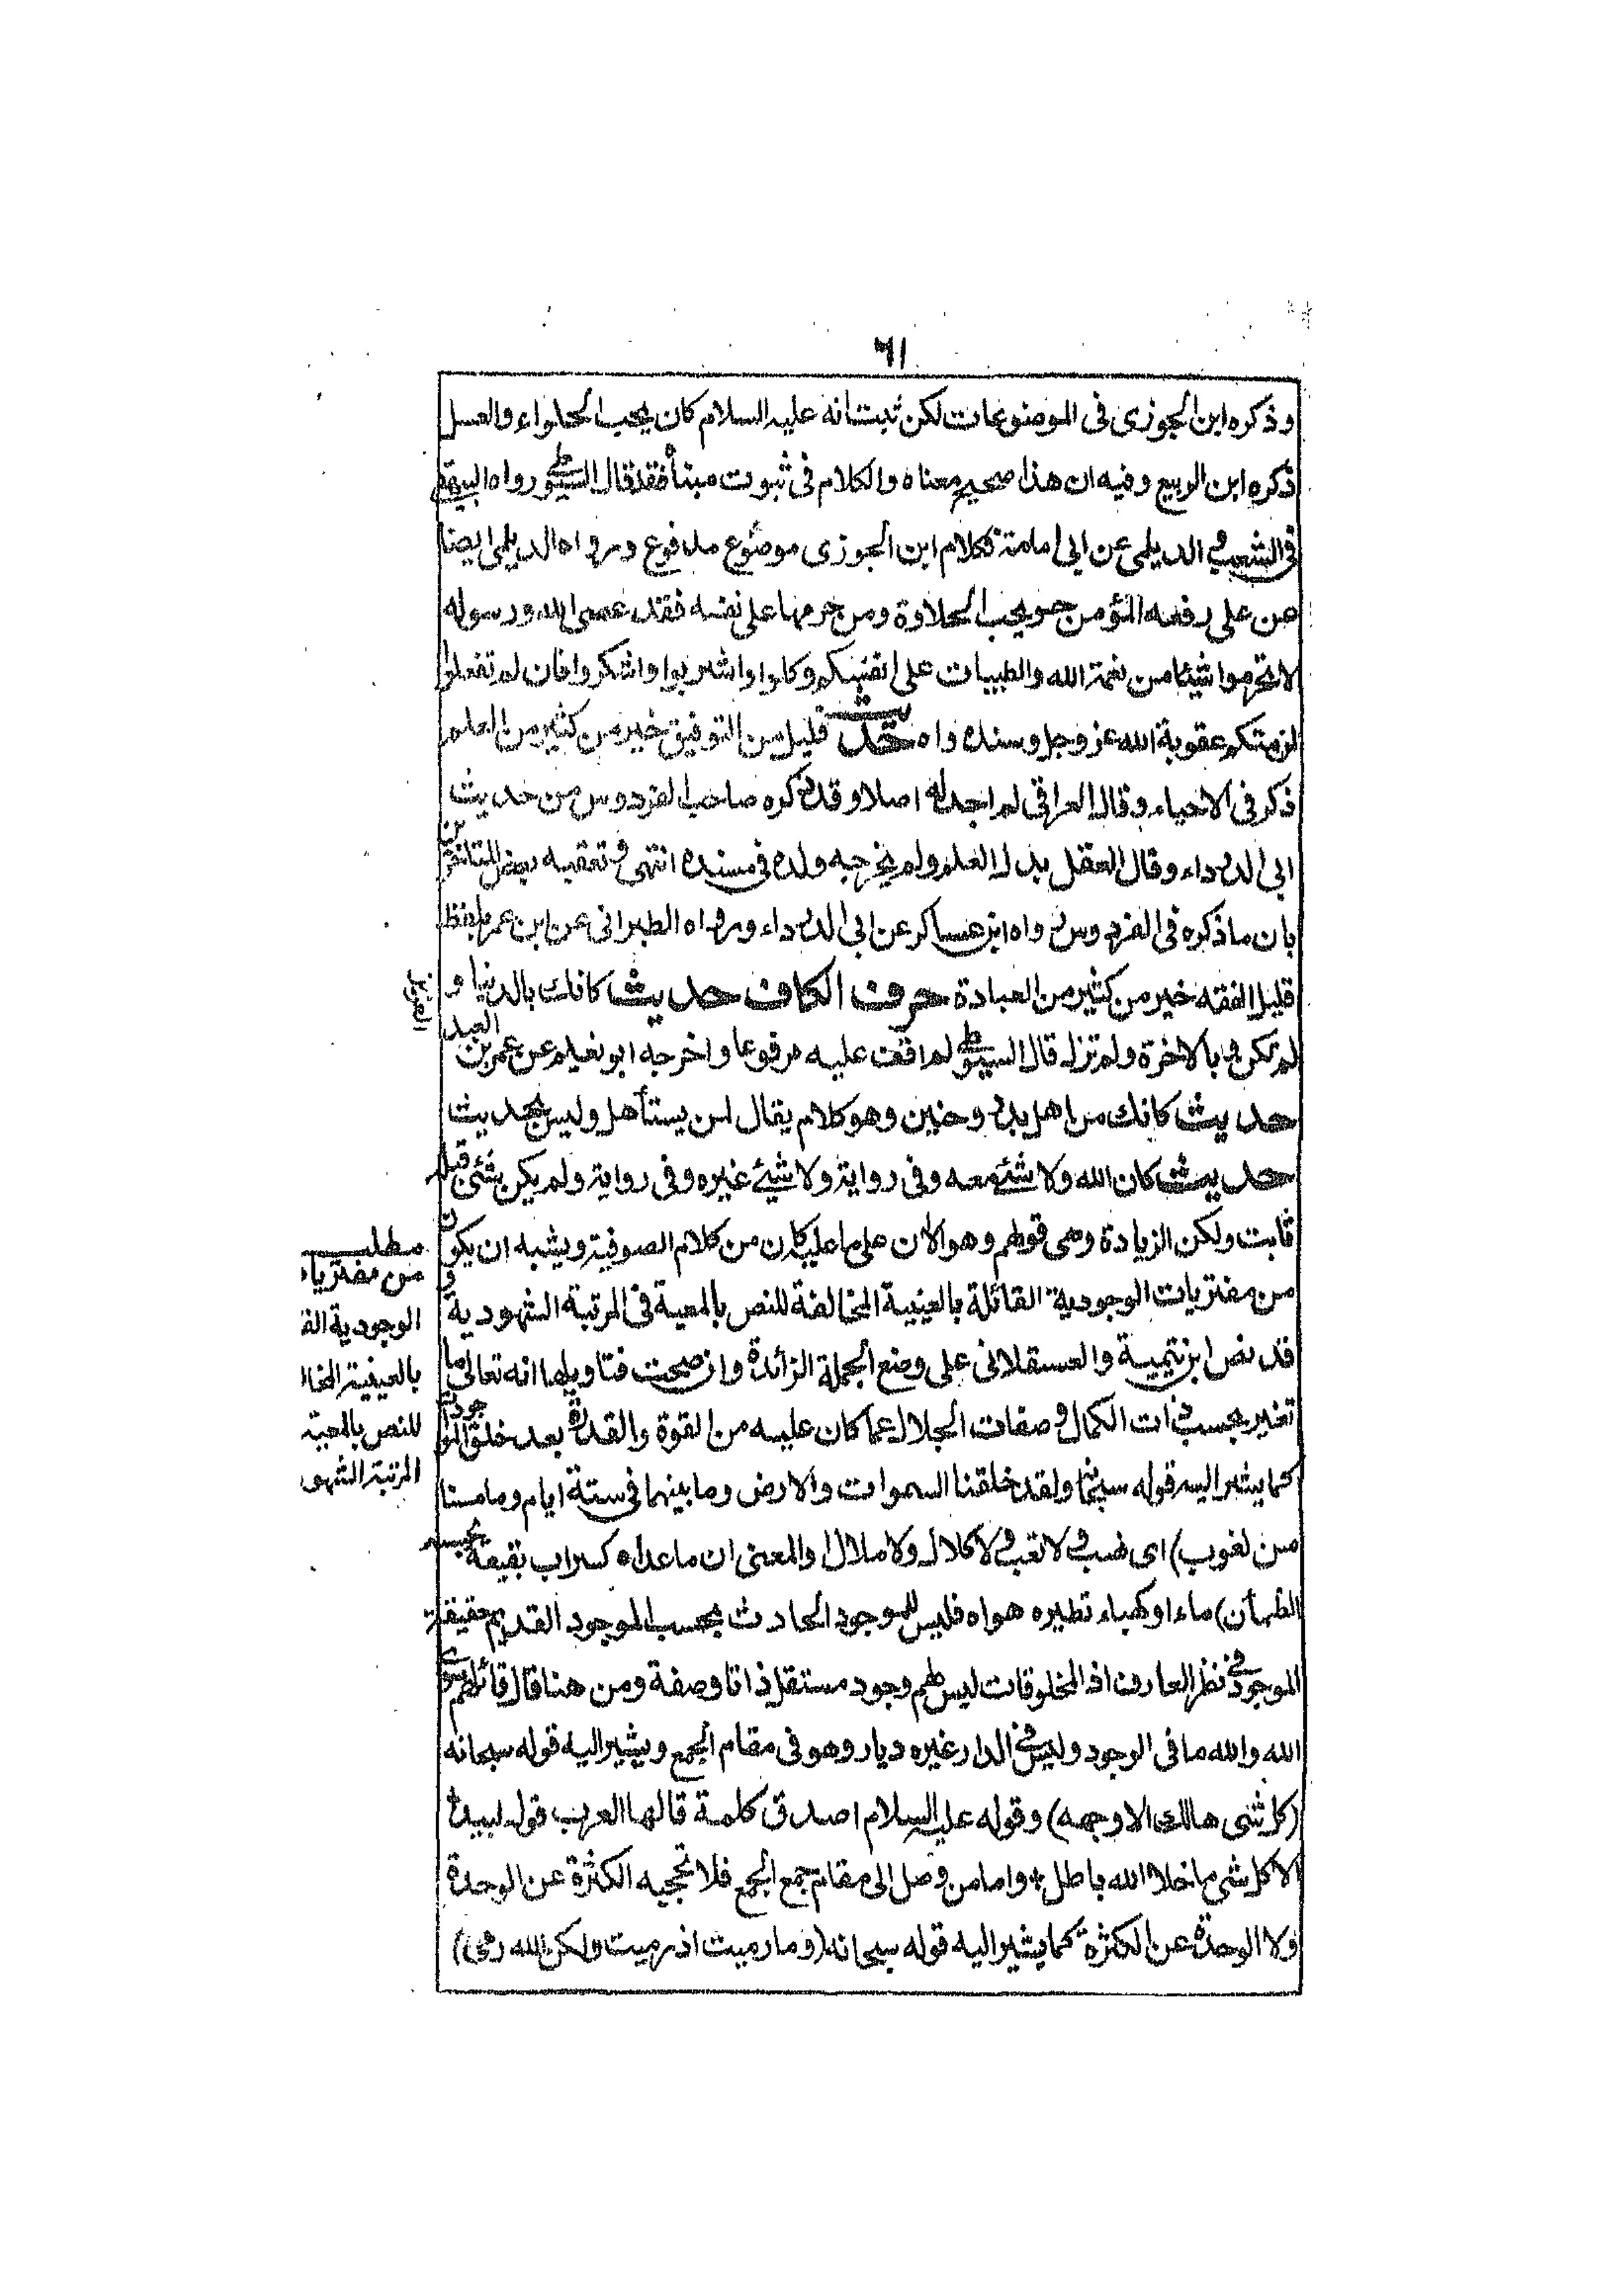 ٦١
وذكره ابن الجوزى فى الموضوعات لكن ثبت انه عليه السلام كان يحب الحلواء والعسل
ذكره ابن الربيع وفيه ان هذا صحيح معناه والكلام فى ثبوت مبناه فقد قال السيوطى رواه البيهقى
فى الشعب والديلمى عن ابى امامة فكلام ابن الجوزى موضوع مدفوع ورواه الديلمى ايضا
عن على رفعه المؤمن حلو يحب الحلاوة ومن حرمها على نفسه فقد عصى الله ورسوله
لا تحرموا شيئا من نعمة الله والطيبات على انفسكم وكلوا واشربوا واشكروا فان لم تفعلوا
لزمتكم عقوبة الله عز وجل وسنده واه حديث قليل من التوفيق خير من كثير من العلم
ذكر فى الاحياء وقال العراقى لم اجد له اصلا وقد ذكره صاحب الفردوس من حديث
ابى الدرداء وقال العقل بدل العلم ولم يخرجه ولده فى مسنده انتهى وتعقبه بعض المتاخرين
بان ما ذكره فى الفردوس رواه ابن عساكر عن ابى الدرداء ورواه الطبرانى عن ابن عمر بلفظ
قليل الفقه خير من كثير من العبادة حرف الكاف حديث كانك بالدنيا و
لم تكن وبالاخرة ولم تزل قال السيوطى لم اقف عليه مرفوعا واخرجه ابو نعيم عن عمر بن عبد
العزيز
حديث كانك من اهل بدر وحنين وهو كلام يقال لمن يستأهل وليس بحديث
حديث كان الله ولا شئ معه وفى رواية ولا شئ غيره وفى رواية ولم يكن شئ قبله
ثابت ولكن الزيادة وهى قولهم وهو الان على ما عليه كان من كلام الصوفية ويشبه ان يكون
من مفتريات الوجودية القائلة بالعينية المخالفة للنص بالمعية فى المرتبة الشهودية و
قد نص ابن تيمية والعسقلانى على وضع الجملة الزائدة وان صحت فتاويلها انه تعالى ما
تغير بحسب ذات الكمال وصفات الجلال عما كان عليه من القوة والقدرة بعد خلق الموجودات
كما يشير اليه قوله سبحانه ولقد خلقنا السموات والارض وما بينهما فى ستة ايام وما مسنا
من لغوب) اى نصب ولا تعب ولا كلال ولا ملال والمعنى ان ما عداه كسراب بقيعة يحسبه
الظمأن) ماء او كهباء تطيره هواه فليس للموجود الحادث بحسب الموجود القديم حقيقة
الموجود فى نظر العارف اذ المخلوقات ليس لهم وجود مستقل ذاتا وصفة ومن هنا قال قائلهم سوى
الله والله ما فى الوجود وليس فى الدار غيره ديار وهو فى مقام الجمع ويشير اليه قوله سبحانه
(كل شى هالك الا وجهه) وقوله عليه السلام اصدق كلمة قالها العرب قول لبيد
الا كل شى ما خلا الله باطل + واما من وصل الى مقام جمع الجمع فلا تحجبه الكثرة عن الوحدة
ولا الوحدة عن الكثرة كما يشير اليه قوله سبحانه (وما رميت اذ رميت ولكن الله رمى)
مطلب
من مفتريات
الوجودية الق
بالعينية المخا
للنص بالمعية
المرتبة الشهو